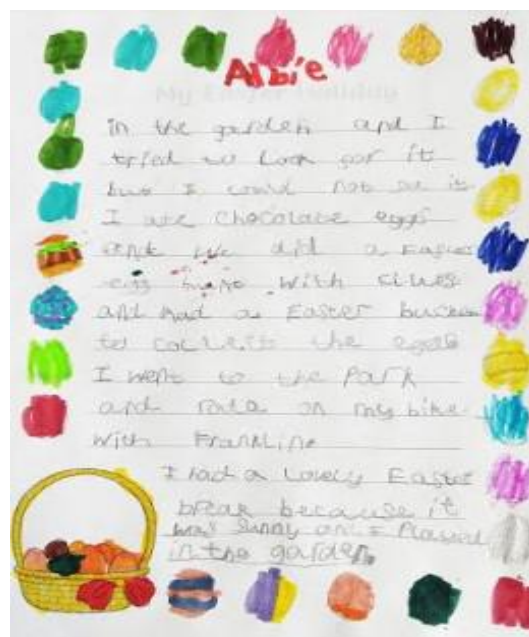 Albie
My Easter Holiday
in the garden and I
tried to look for it
but I could not se it
I ate chocolate eggs
and we did a Easter
egg with clues
and had a Easter
to the eggs
I went to the Park
and on my bike
with
I had a Lovely Easter
break because it
was sunny and I Played
in the garden